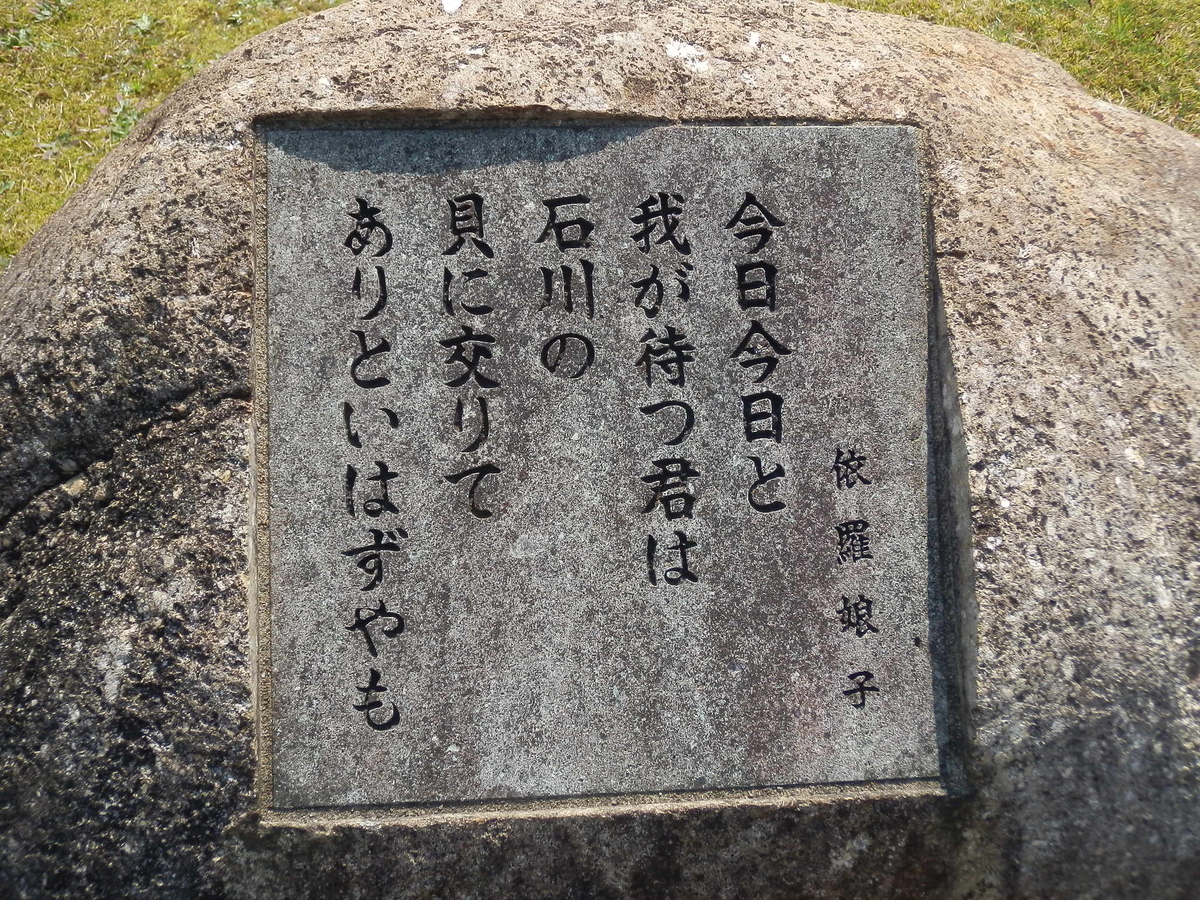 依羅娘子
今日今日と
我が待つ君は
石川の
貝に交りて
ありといはずやも